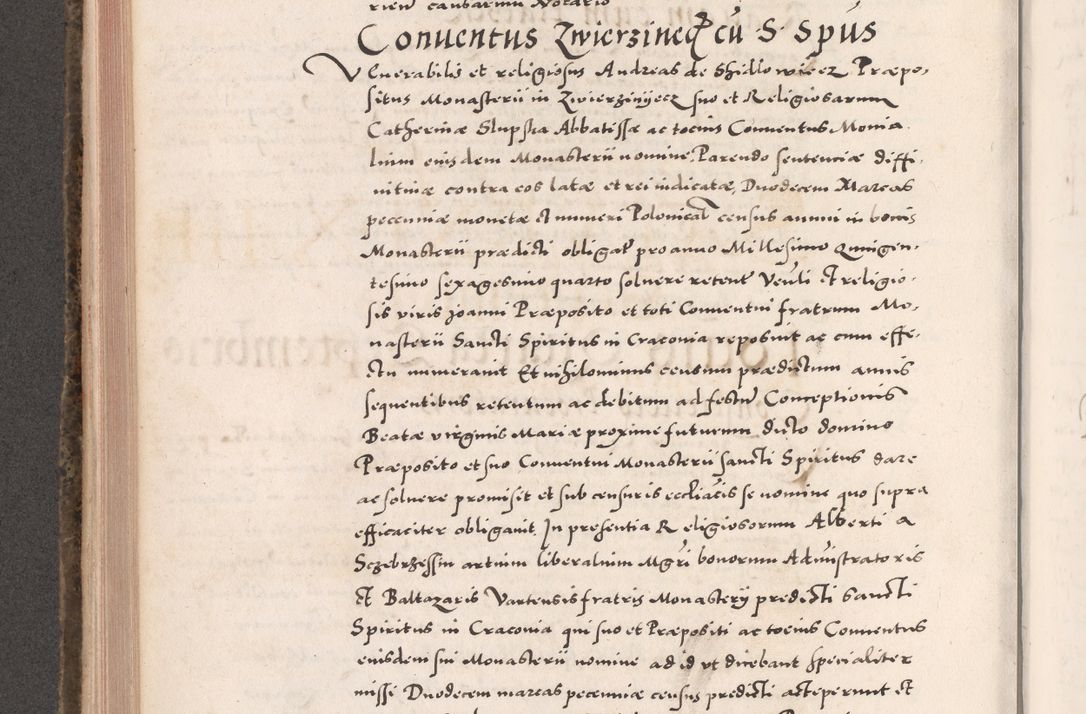 rien causarum Notario
Conuentus Zwierzinecz cū S Spūs
Venerabilis et religiosus Andreas de Shidlowiecz Præpo,
situs Monasterii in Zwierzinijecz suo et Religiosarum
Catherinæ Slupska Abbatissæ ac tocius Conuentus Monia
lium eiusdem Monasterii nomine, Parendo sentenciæ diffi,
nitiuæ contra eos latæ et rei iudicatæ, Duodecem Marcas
pecuniæ monetæ et numeri Polonical census annui in bonis
Monasterii prædicti obligat pro anno Millesimo Quingen,
tesimo sexagesimo quarto soluere retent Venli et religio,
sis viris Joanni Præposito et toti Conuentui fratrum Mo,
nasterii Sancti Spiritus in Craconia reposuit ac cum effe,
ctu numerauit Et nihilominus censum prædictum annis
sequentibus retentum ac debitum ad festum Conceptionis
Beatæ virginis Mariæ proxime futurum dicto domino
Præposito et suo Conuentui Monasterii sancti Spiritus dare
ac soluere promisit et sub censuris eccliacis se nomine quo supra
efficaciter obligauit. In presentia Religiosorum Alberti a
Sczebrzessin artium liberalium Mgri bonorum Admistratoris
et Baltazaris Vartensis fratris Monasterij predicti sancti
Spiritus in Craconia qui suo et Præpositi ac tocius Conuentus
eiusdem sui Monasterii nomine ad id vt dicebant specialiter
missi Duodecem marcas pecuniæ census predicti acteperunt et